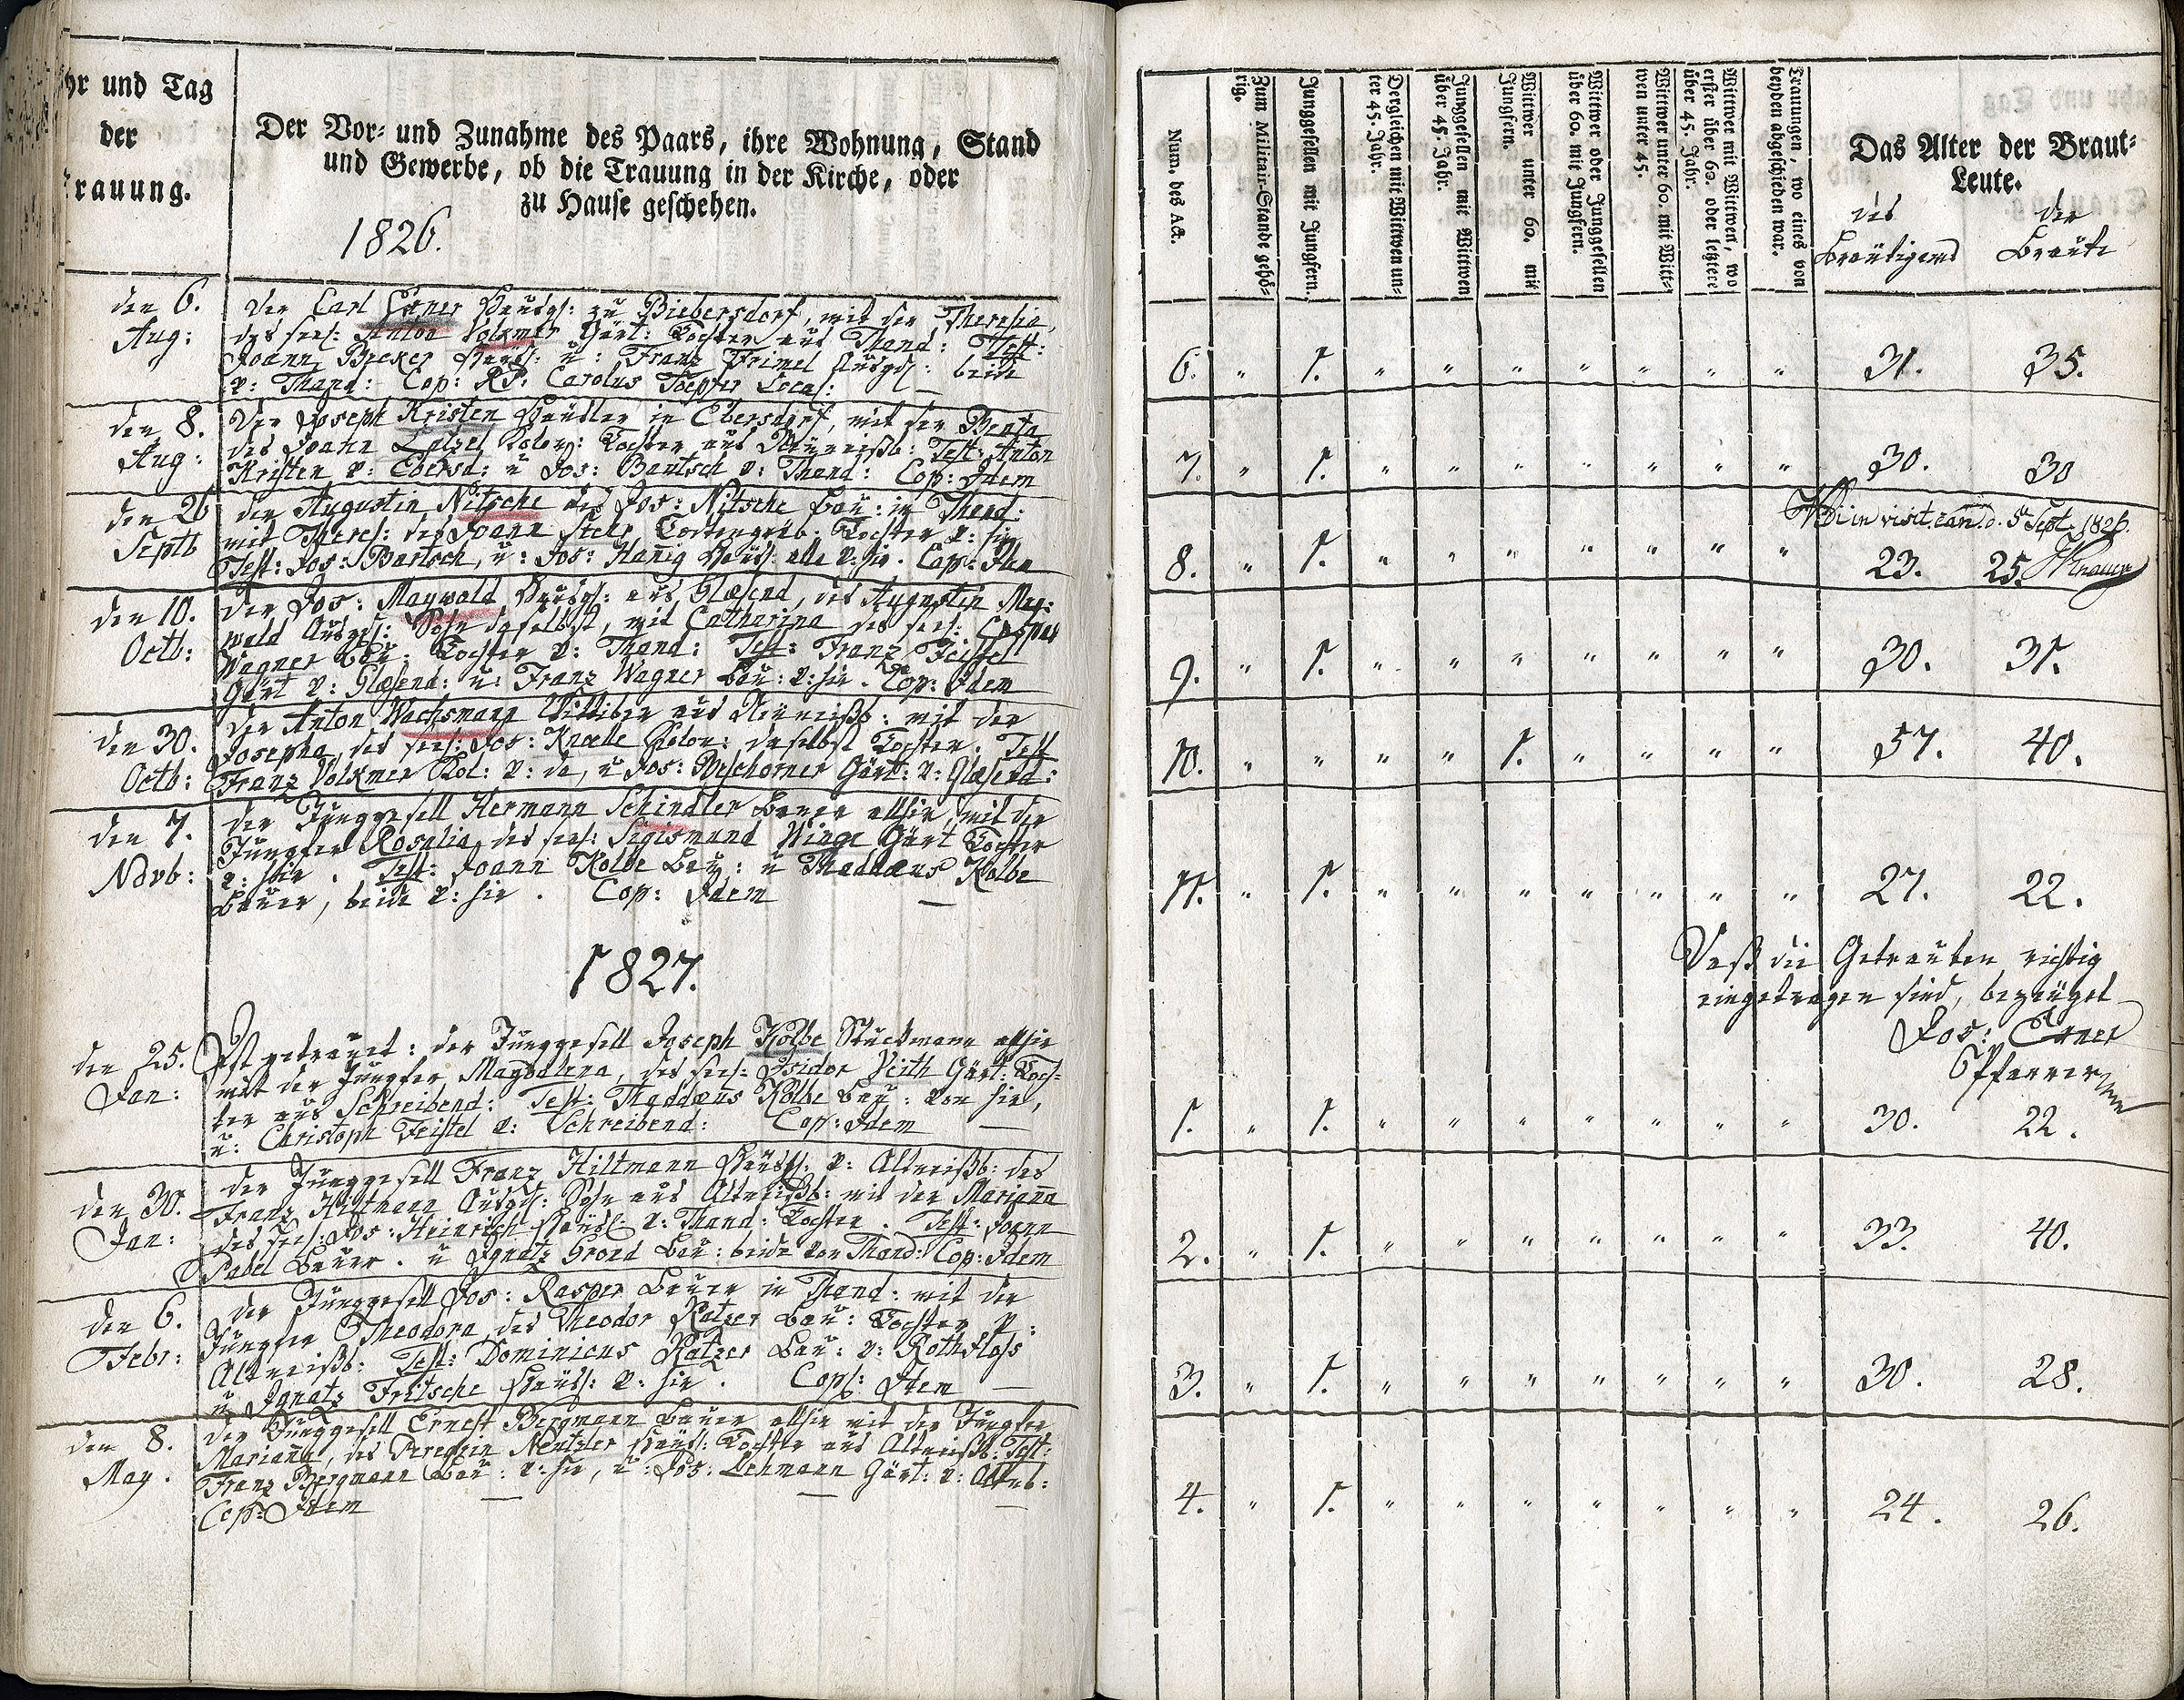 hr und Tag
der
rauung.
Der Vor- und Zunahme des Paars, ihre Wohnung, Stand
und Gewerbe, ob die Trauung in der Kirche, oder
zu Hause geschehen.
1826.
den 6.
Aug:
der Carl Exner zu Biebersdorf, mit der Theresia,
des seel: Anton Volkmer Gärt: Tochter aus Thand: Test:
Joann Becker Häusl: u: Franz beide
v: Thand: Cop: RP. Carolus Toepfer Local:
den 8.
Aug:
Der Joseph Kristen Häusler in Ebersdorf, mit der Beata
des Joann Latzel Colon: Tochter aus Neuweißb: Test: Anton
Kristen v: Ebersd: u Jos: Bartsch v: Thand: Cop: Idem
den 26
Septb
der Augustin Nitsche des Jos: Nitsche Bau: in Thand:
mit Theres: des Joann Stehr Tochter v: hie
Test: Jos: Bartsch, u: Jos: Hanig Häusl: alle v: hie. Cop: Idem
den 10.
Octb:
Der Jos: Maywald aus Glasend, des Augustin May:
wald Ausged: Sohn daselbst, mit Catharina des seel: Caspar
Wagner Bau: Tochter v: Thand: Test: Franz Feistel
Gärt v: Glasend: u: Franz Wagner Bau: v: hie. Cop: Idem
den 30.
Octb:
Der Anton Wachsmann Wittiber aus Neuweißb: mit der
Josepha, des seel: Jos: Knolle Colon: daselbst Tochter. Test
Franz Volkmer Kol: v: da, u Jos: Beschorner Gärt: v: Glasend:
den 7.
Novb:
der Junggesell Hermann Schindler Bauer allhie, mit der
Jungfer Rosalia, des seel: Sigismund Winge Gärt Tochter
v: hie. Test: Joann Kolbe Bau: u Thaddæus Kolbe
Bauer, beide v: hie. Cop: Idem
1827.
den 25.
Jan:
Ist getrauet: der Junggesell Joseph Kolbe Stuckmann allhie
mit der Jungfer Magdalena, des seel: Isidor Veith Gärt: Toch-
ter aus Schreibend: Test: Thaddæus Kolbe Bau: von hie,
u: Christoph Feistel v: Schreibend: Cop: Idem
den 30.
Jan:
der Junggesell Franz Hiltmann Häusl: v: Altweißb: des
Franz Hiltmann Ausged: Sohn aus Altweißb: mit der Mariana
des seel: Jos: Heinrich Häusl: v: Thand: Tochter. Test: Joann
Sabel Bauer. u Ignatz Groed Bau: beide von Thand: Cop: Idem
den 6.
Febr:
der Junggesell Jos: Rasper Bauer in Thand: mit der
Jungfer Theodora, des Theodor Ratzer Bau: Tochter v:
Altweißb: Test: Dominicus Ratzer Bau: v: Rothfloss
u Ignatz Fritsche Häusl: v: hie. Cop: Idem
den 8.
May.
der Junggesell Ernest Bergmann Bauer allhie mit der Jungfer
Mariana, des Peregrin Nentzler Häusl: Tochter aus Altweißb: Test:
Franz Bergmann Bau: v: hie, u: Jos: Lehmann Gärt: v: Altwb:
Cop: Idem
Num. des Act.
Zum Militair-Stande gehö-
rig.
Junggesellen mit Jungfern.
Dergleichen mit Wittwen un-
ter 45. Jahr.
Junggesellen mit Wittwen
über 45. Jahr.
Wittwer unter 60. mit
Jungfern.
Wittwer oder Junggesellen
über 60. mit Jungfern.
Wittwer unter 60. mit Witt-
wen unter 45.
Wittwer mit Wittwen, wo
erster über 60. oder letztere
über 45. Jahr.
Trauungen, wo eines von
beyden abgeschieden war.
Das Alter der Braut-
Leute.
des der
Bräutigams Braut
6. " 1. " " " " " " " 31. 35.
7. " 1. " " " " " " " 30. 30
Vidi in visit. can. d. 5 Sept. 1826.
8. " 1. " " " " " " " 23. 25.
9. " 1. " " " " " " " 30. 31.
10. " " " " 1. " " " " 57. 40.
11. " 1. " " " " " " " 27. 22.
Daß die Getrauten richtig
eingetragen sind, bezeuget
Jos: Exner
Pfarrer
1. " 1. " " " " " " " 30. 22.
2. " 1. " " " " " " " 33. 40.
3. " 1. " " " " " " " 30. 28.
4. " 1. " " " " " " " 24. 26.